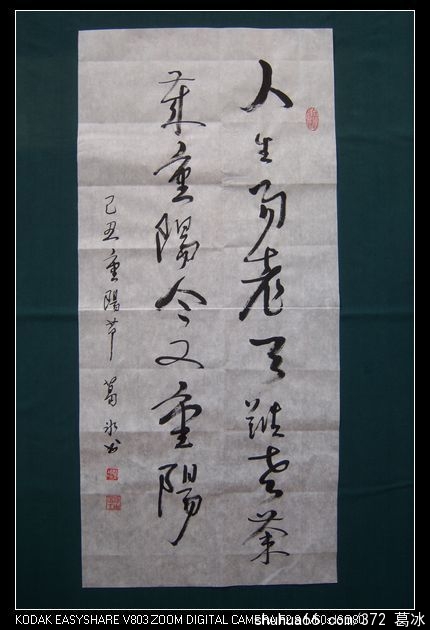 人生易老天難老歲
歲重陽今又重陽
己丑重陽節 葛冰书
KODAK EASYSHARE V803 ZOOM DIGITAL CAMERA
shuhua66.com/372 葛冰